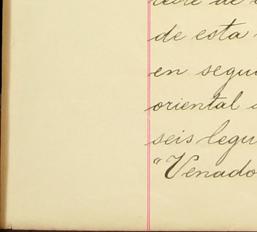 de esta
en segui
oriental
seis legu
"Venado